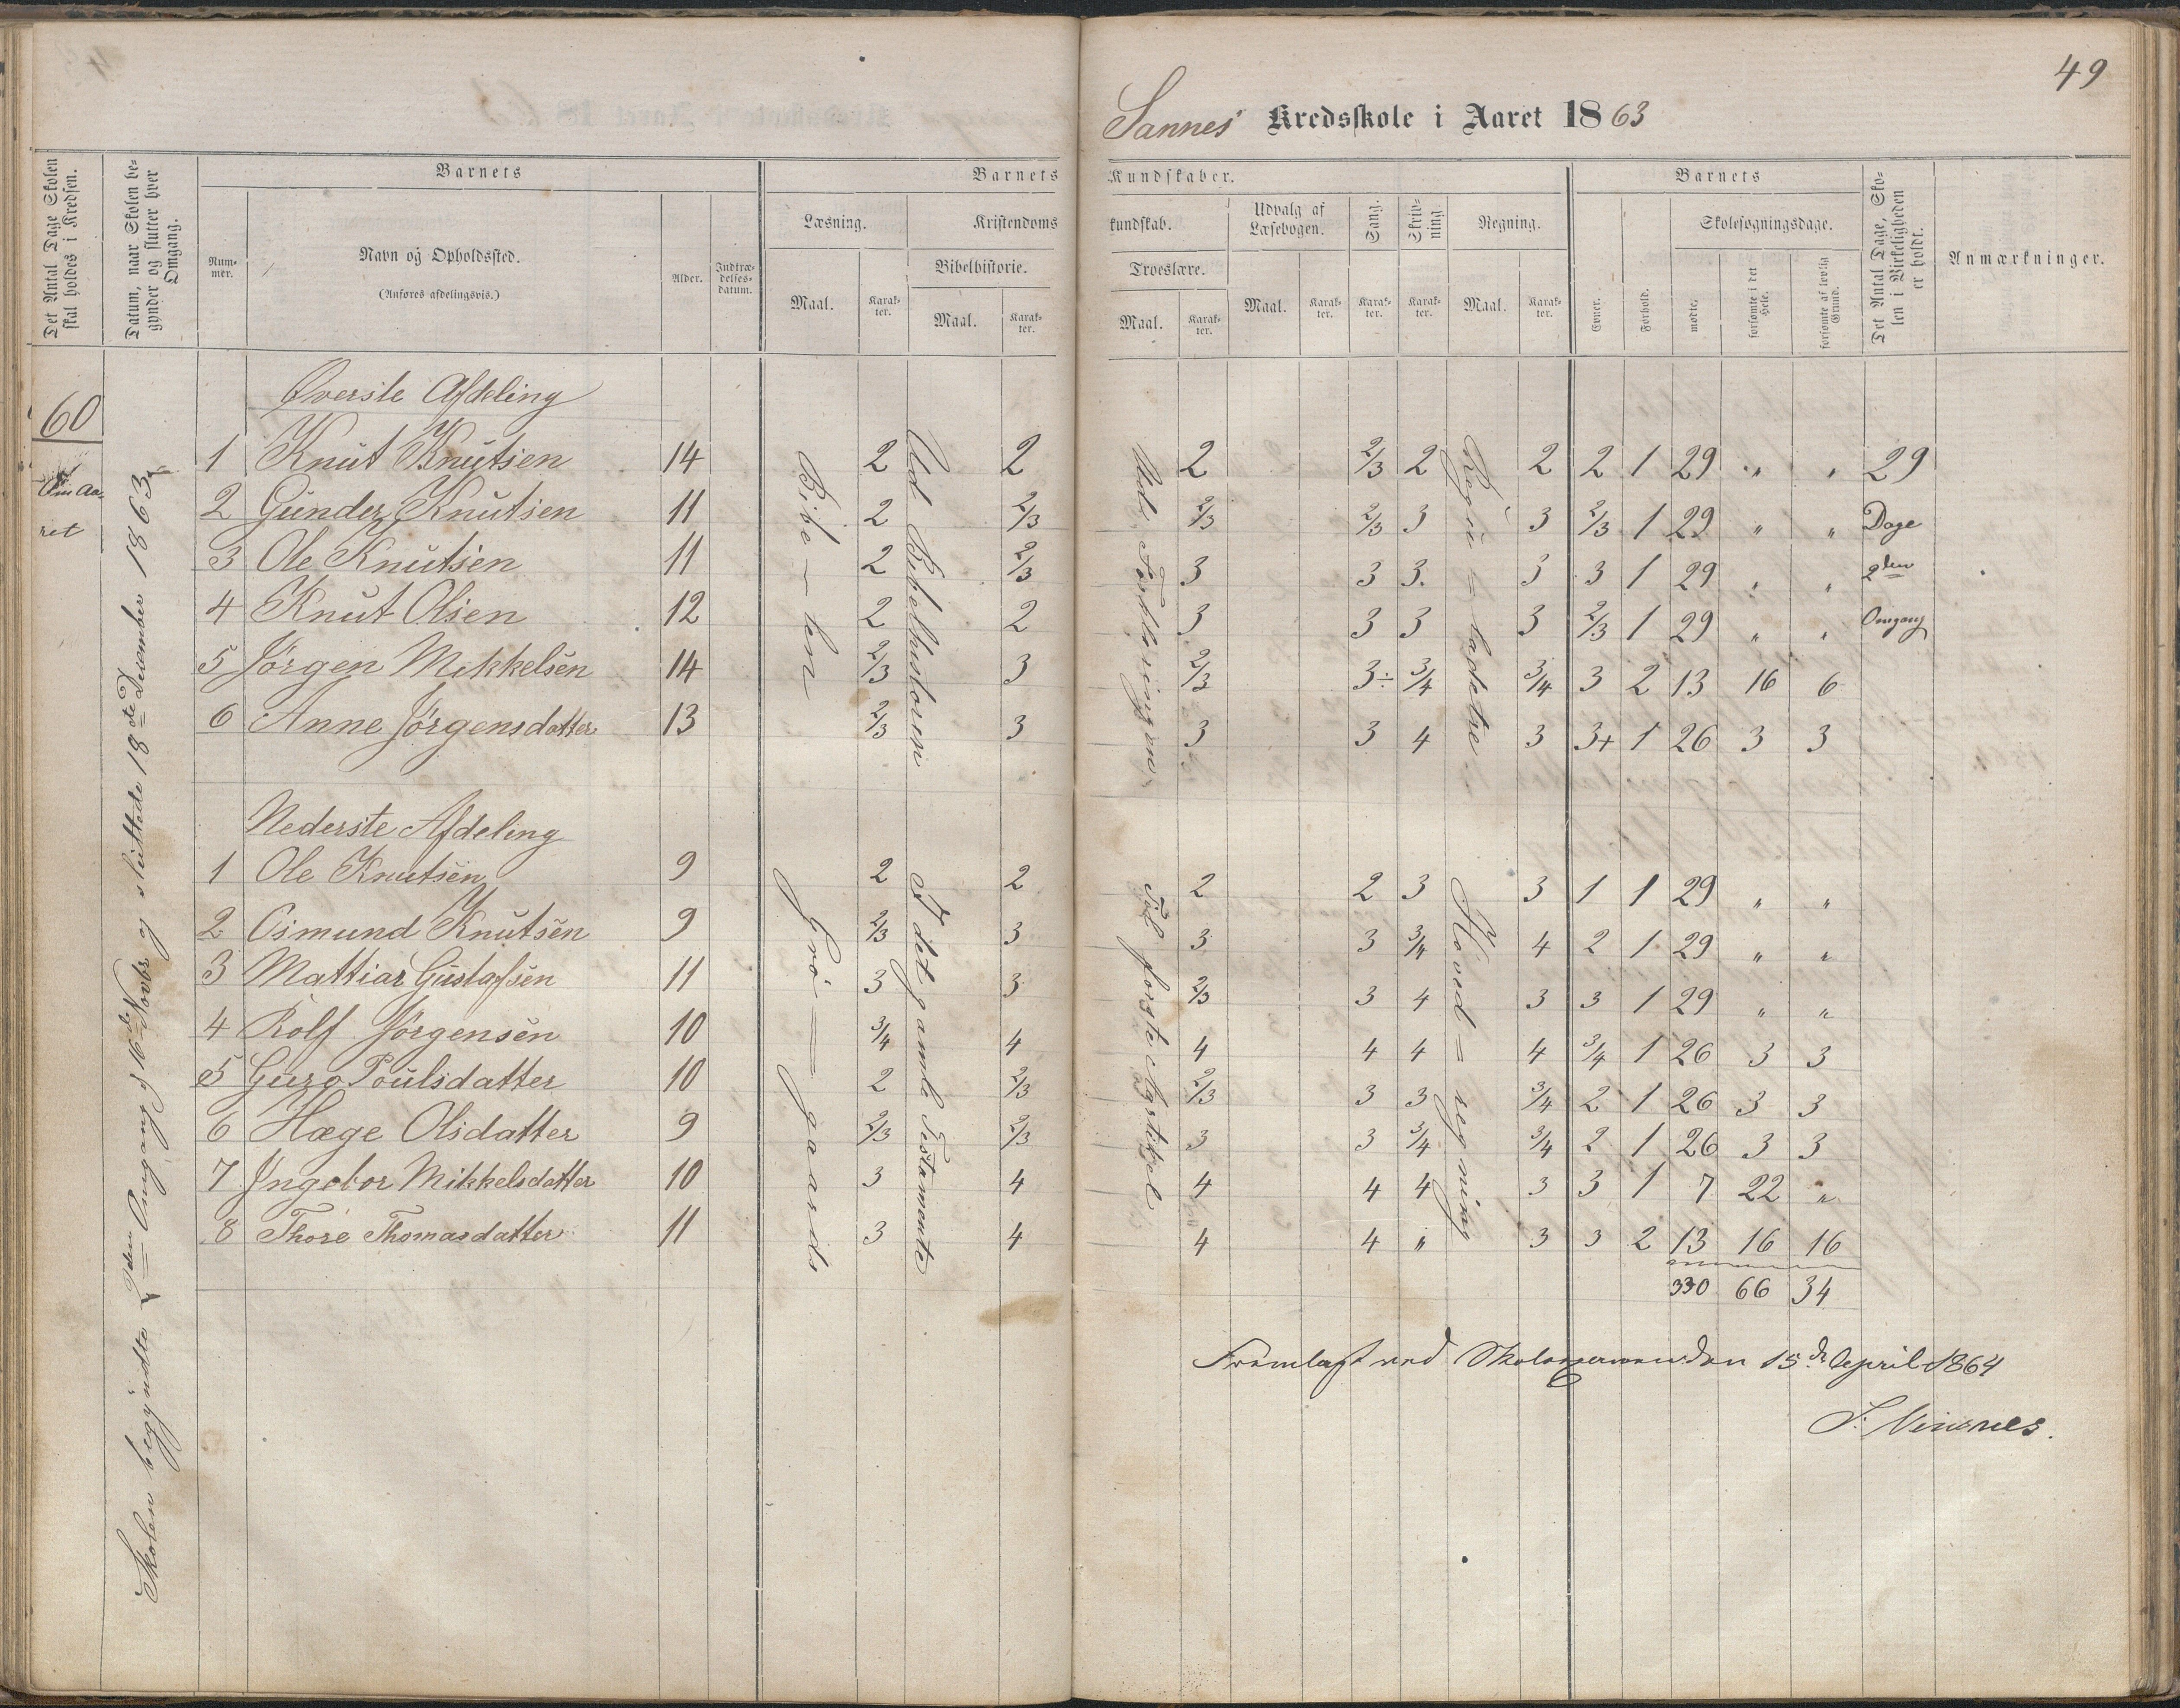 49
Sannes Kredsskole i Aaret 1863
Det Antal Dage Skolen skal holdes i Kredsen.
Datum, naar Skolen begynder og slutter hver Omgang.
Barnets
Nummer.
Navn og Opholdssted.
(Anføres afdelingsvis.)
Alder.
Indtrædelsesdatum.
Barnets Kundskaber.
Læsning.
Maal.
Karakter.
Kristendomskundskab.
Bibelhistorie.
Maal.
Karakter.
Troeslære.
Maal.
Karakter.
Udvalg af Læsebogen.
Maal.
Karakter.
Sang.
Karakter.
Skrivning.
Karakter.
Regning.
Maal.
Karakter.
Barnets
Evner.
Forhold.
Skolesøgningsdage.
mødte.
forsømte i det Hele.
forsømte af lovlig Grund.
Det Antal Dage, Skolen i Virkeligheden er holdt.
Anmærkninger.
60
Om Aaret
Skolen begyndte 2den Omgang d 16de Novbr og sluttede 18de December 1863
Øverste Afdeling
1 Knut Knutsen 14 2 2 2 2/3 2 2 2 1 29 " " 29
2 Gunder Knutsen 11 2 2/3 2/3 2/3 3 3 2/3 1 29 " " Dage
3 Ole Knutsen 11 2 2/3 3 3 3. 3 3 1 29 " " 2den
4 Knut Olsen 12 2 2 3 3 3 3 2/3 1 29 " " Omgang
5 Jörgen Mikkelsen 14 2/3 3 2/3 3÷ 3/4 3/4 3 2 13 16 6
6 Anne Jörgensdatter 13 2/3 3 3 3 4 3 3+ 1 26 3 3
Bibe-len
Ud Bibelhistorien
Ud Forklaringen
Regu=ladetrie
Nederste Afdeling
1 Ole Knutsen 9 2 2 2 2 3 3 1 1 29 " "
2 Osmund Knutsen 9 2/3 3 3 3 3/4 4 2 1 29 " "
3 Mattias Gustafsen 11 3 3 2/3 3 4 3 3 1 29 " "
4 Rolf Jörgensen 10 3/4 4 4 4 4 4 3/4 1 26 3 3
5 Guro Poulsdatter 10 2 2/3 2/3 3 3 3/4 2 1 26 3 3
6 Hæge Olsdatter 9 2/3 2/3 3 3 3/4 3/4 2 1 26 3 3
7 Ingebor Mikkelsdatter 10 3 4 4 4 4 3 3 1 7 22 "
8 Thore Thomasdatter 11 3 4 4 4 " 3 3 2 13 16 16
Grö=gaards
I det gamle Testamente
Til förste Artikel
Hoved=regning
330 66 34
Fremlagt ved Skoleexamen den 15de April 1864